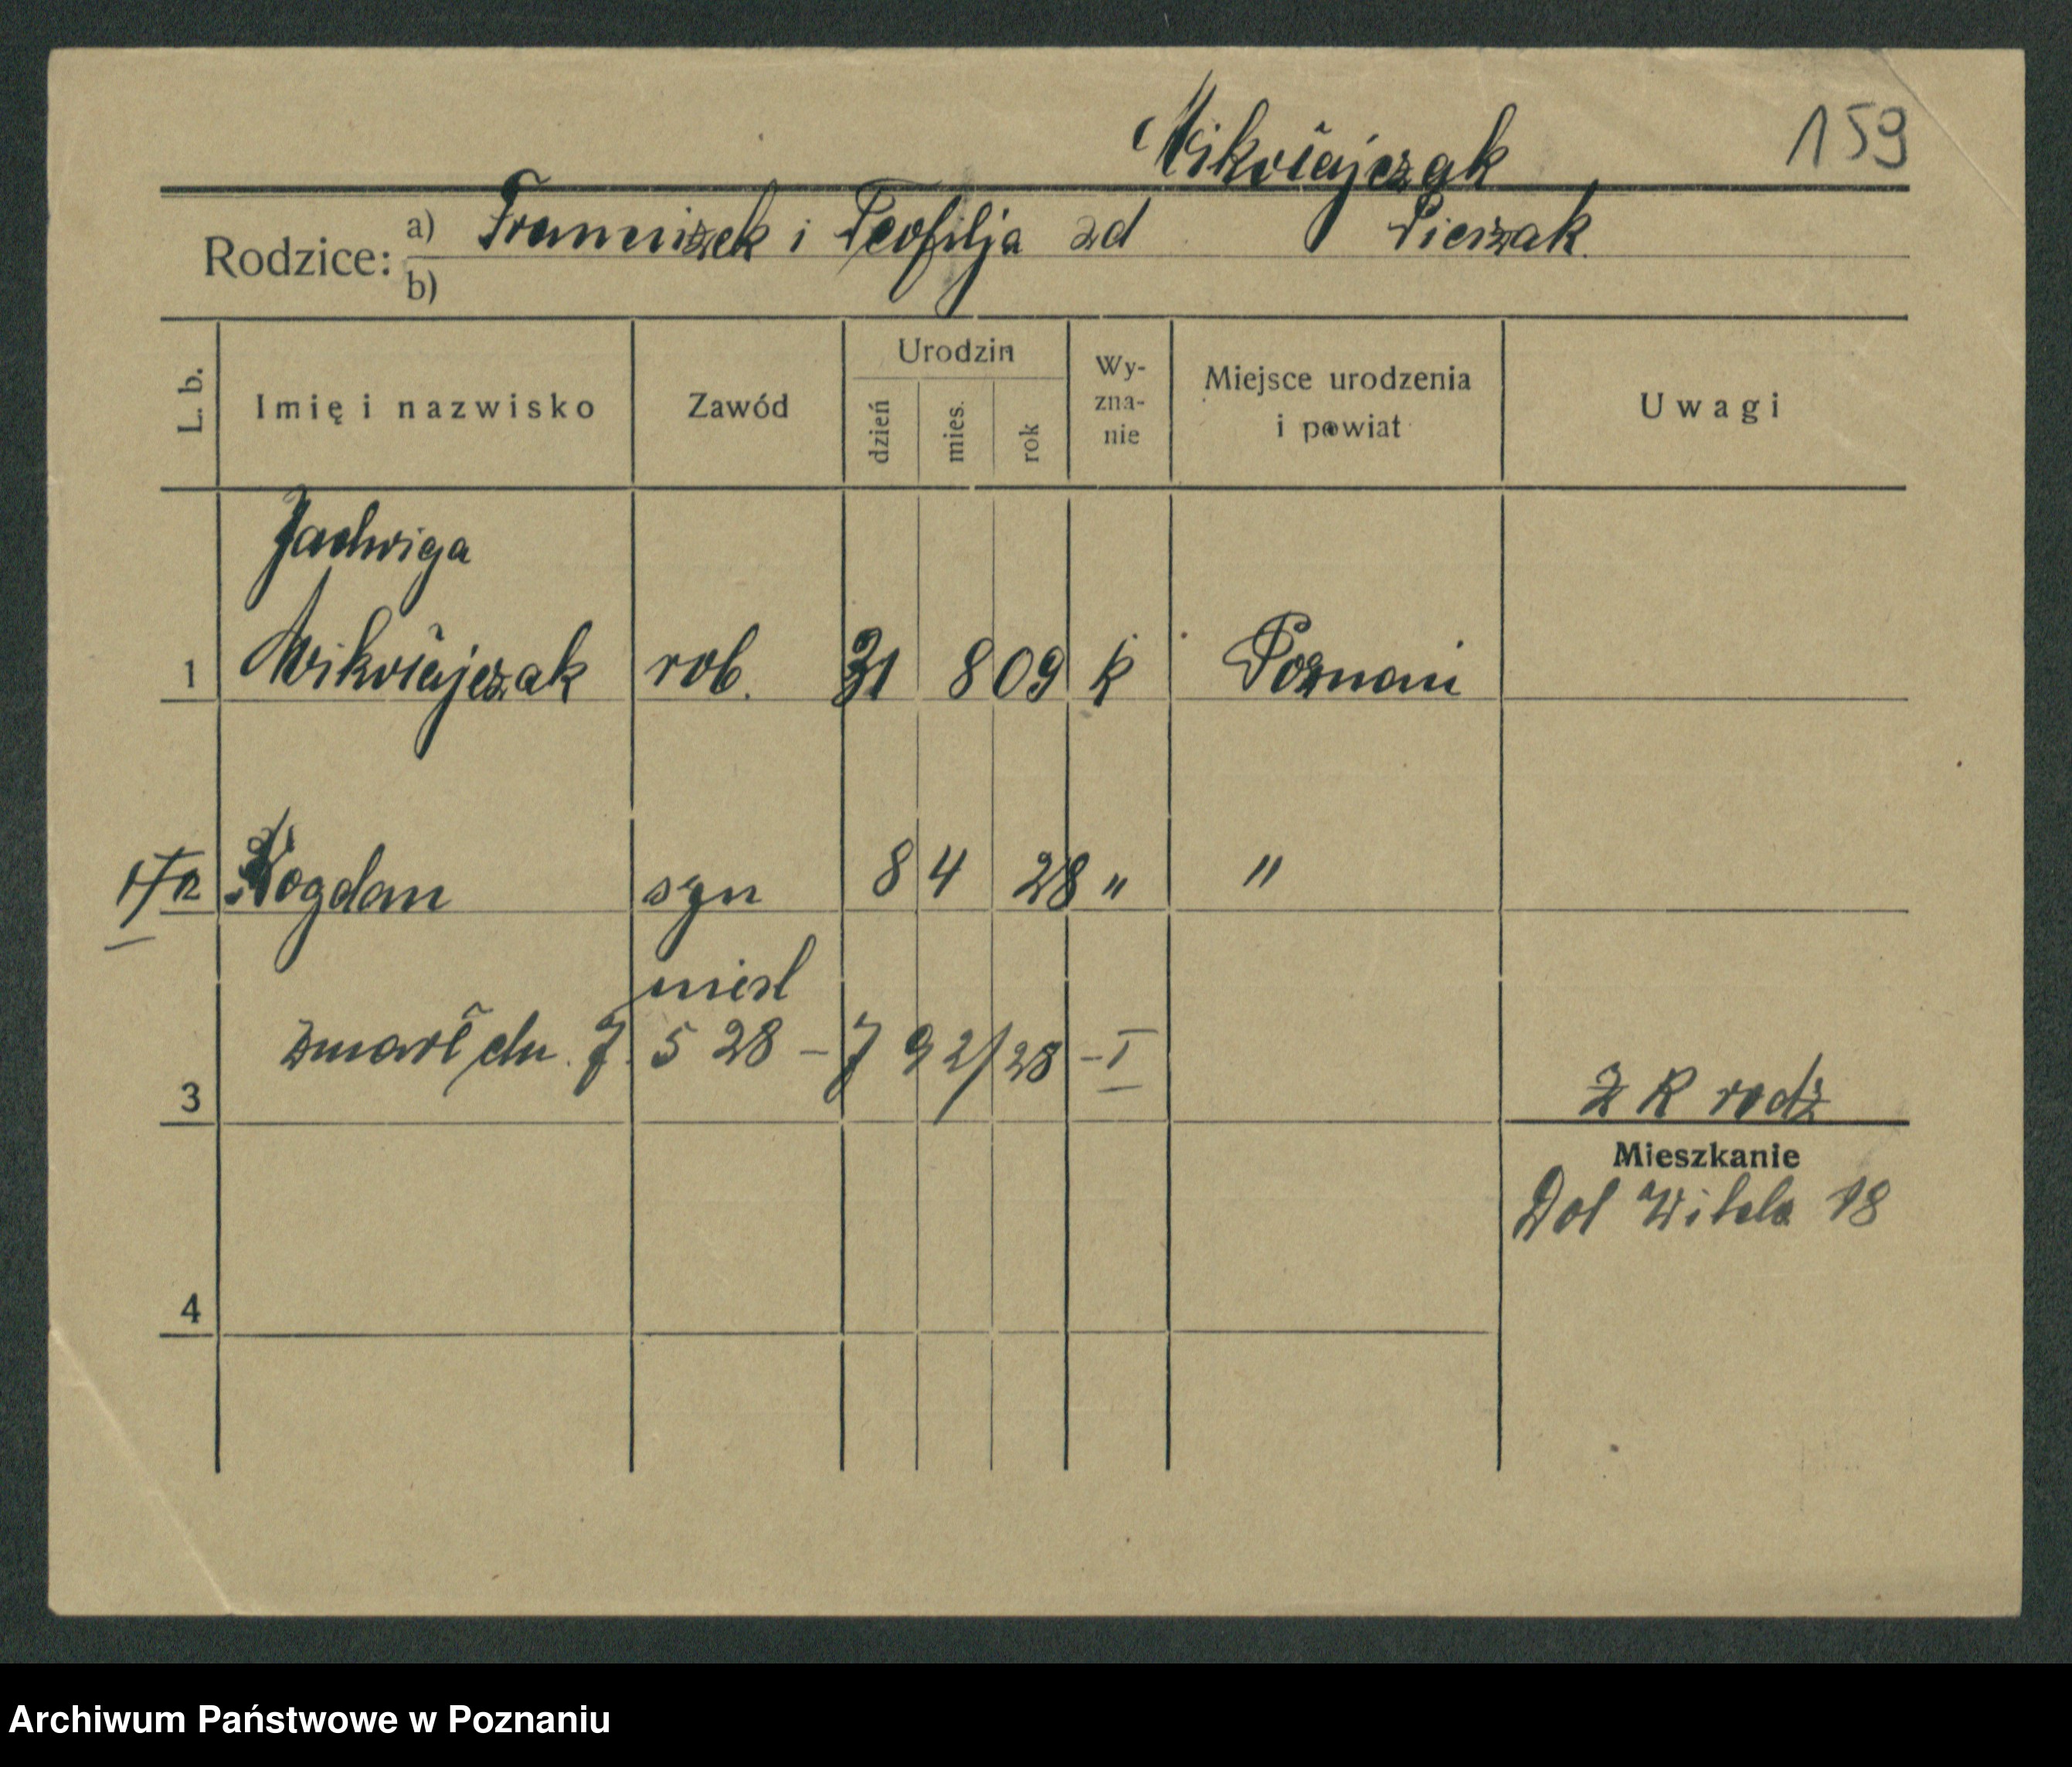 Mikołajczak
159
Rodzice: a) Franciszek i Teofilja zd Pierzak
b)
L. b. Imię i nazwisko Zawód Urodzin dzień mies. rok Wy-zna-nie Miejsce urodzenia i powiat Uwagi
Jadwiga
1 Mikołajczak rob. 31 8 09 k Poznań
Bogdan syn 8 4 28 " "
niesl
3 zmarł dn. 7. 5 28 – 792/28 – I
Z K rodz
Mieszkanie
Dol Wilda 18
4
Archiwum Państwowe w Poznaniu